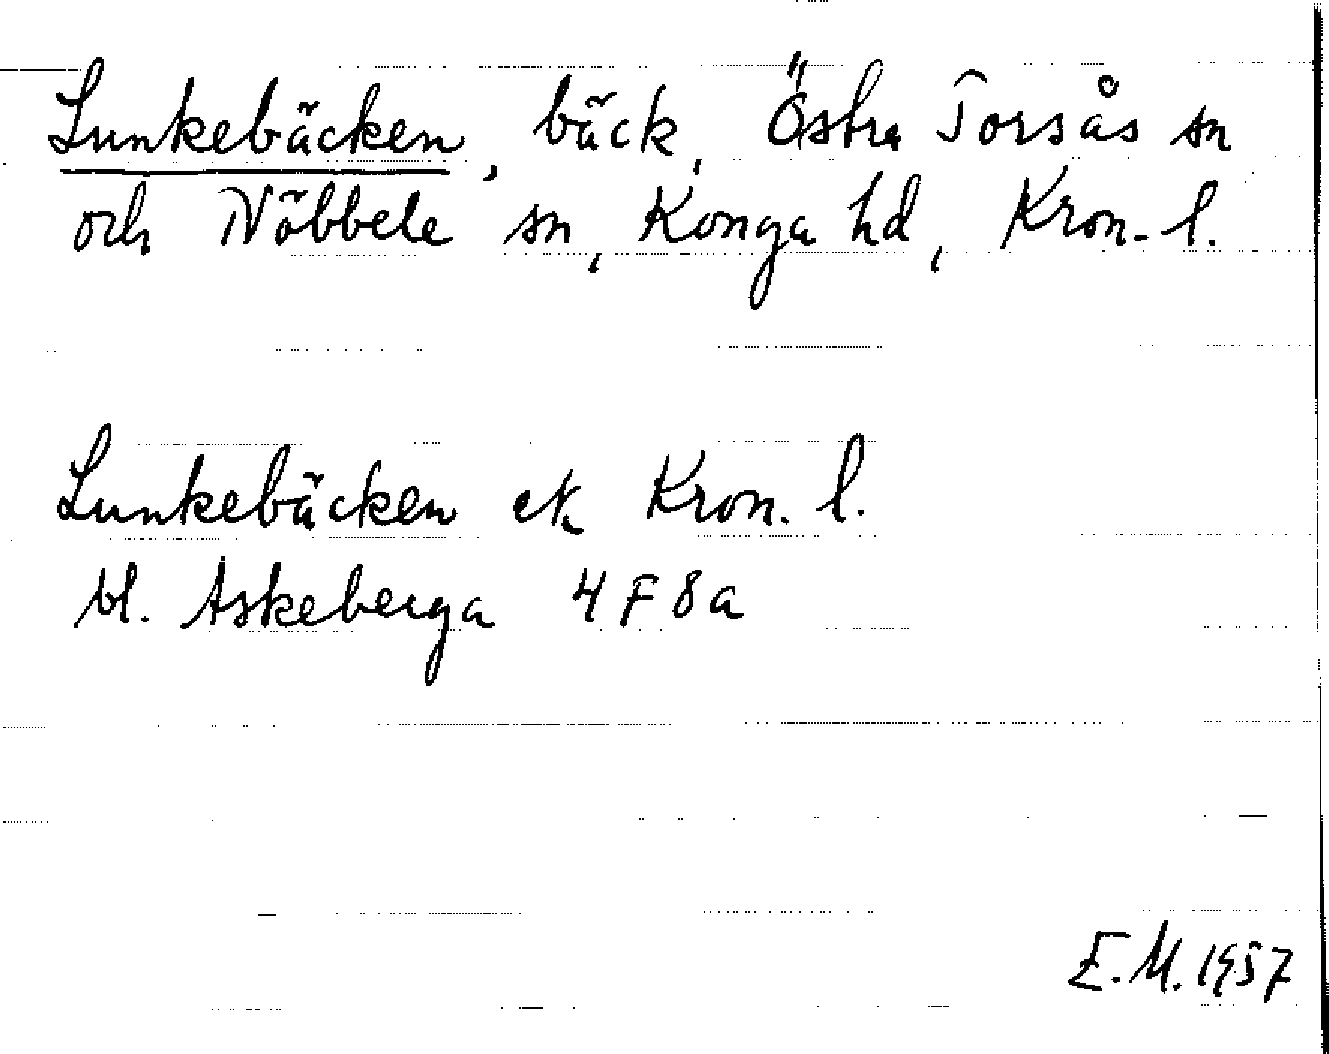 Lunkebäcken, bäck, Östra Torsås sn
och Nöbbele sn, Konga hd, Kron. l.
Lunkebäcken ek Kron. l.
bl. Askeberga 4F8a
E.M. 1957